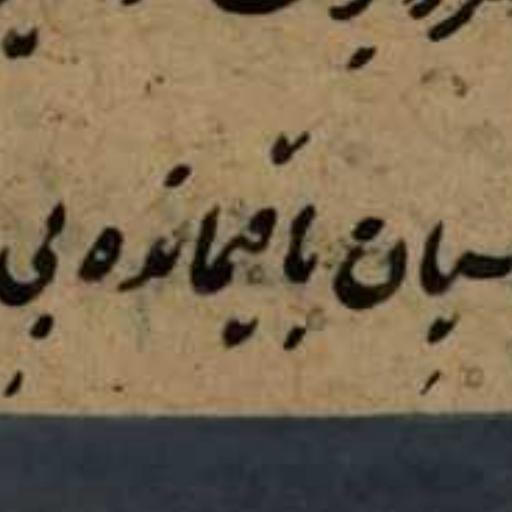 سیان باقیمانده بی